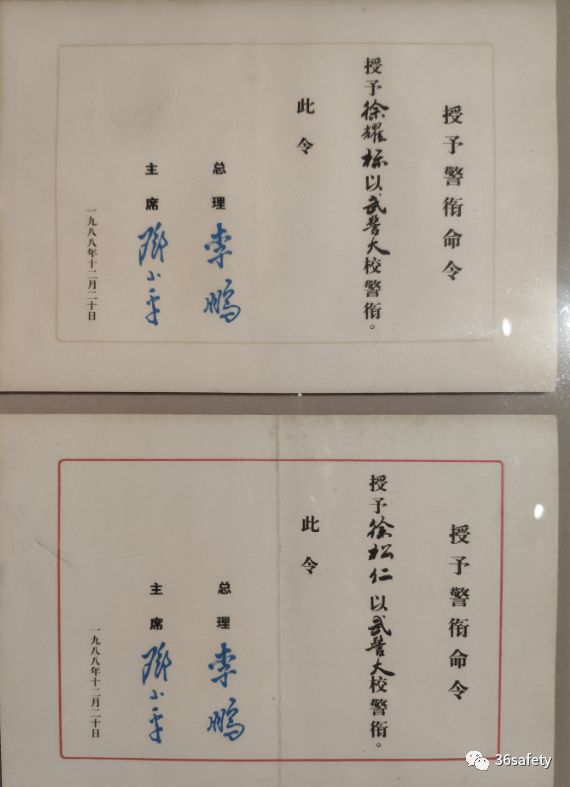 授予警衔命令
授予徐耀标以武警大校警衔。
此令
总理 李鹏
主席 邓小平
一九八八年十二月二十日
授予警衔命令
授予徐松仁以武警大校警衔。
此令
总理 李鹏
主席 邓小平
一九八八年十二月二十日
36safety